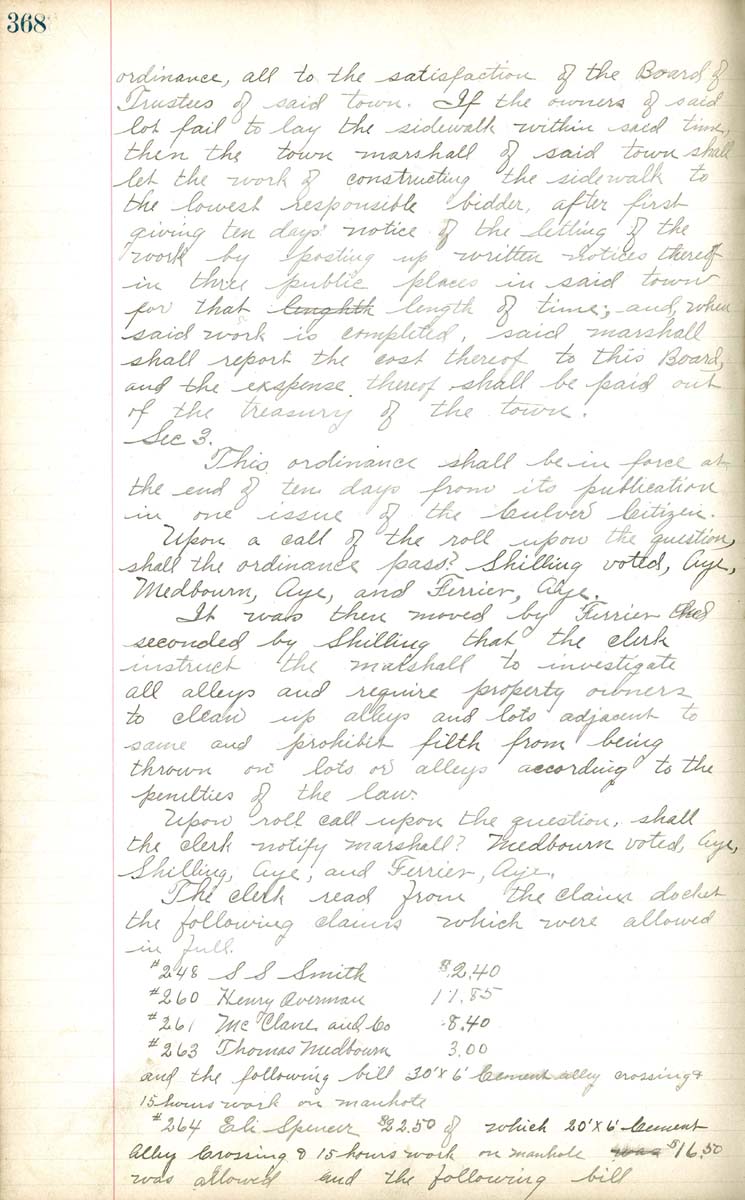 368
ordinance, all to the satisfaction of the Board of
Trustees of said town. If the owners of said
lot fail to lay the sidewalk within said time,
then the town marshall of said town shall
let the work of constructing the sidewalk to
the lowest responsible bidder, after first
giving ten days' notice of the letting of the
work by posting up written notices thereof
in three public places in said town
for that lenghth length of time; and, when
said work is completed, said marshall
shall report the cost thereof to this Board,
and the exspense thereof shall be paid out
of the treasury of the town.
Sec 3.
This ordinance shall be in force at
the end of ten days from its publication
in one issue of the Culver Citizen.
Upon a call of the roll upon the question,
shall the ordinance pass? Shilling voted, Aye,
Medbourn, Aye, and Ferrier, Aye.
It was then moved by Ferrier and
seconded by Shilling that the clerk
instruct the marshall to investigate
all alleys and require property owners
to clean up alleys and lots adjacent to
same and prohibit filth from being
thrown on lots or alleys according to the
penelties of the law.
Upon roll call upon the question, shall
the clerk notify marshall? Medbourn voted, Aye,
Shilling, Aye, and Ferrier, Aye.
The clerk read from the claim docket
the following claims which were allowed
in full.
#248 S S Smith $2.40
#260 Henry Overman 11.85
#261 McClane and Co 8.40
#263 Thomas Medbourn 3.00
and the following bill 30'x6' Cement alley crossing &
15 hours work on manhole
#264 Eli Spencer $22.50 of which 20'x6' Cement
Alley Crossing & 15 hours work on manhole was $16.50
was allowed and the following bill